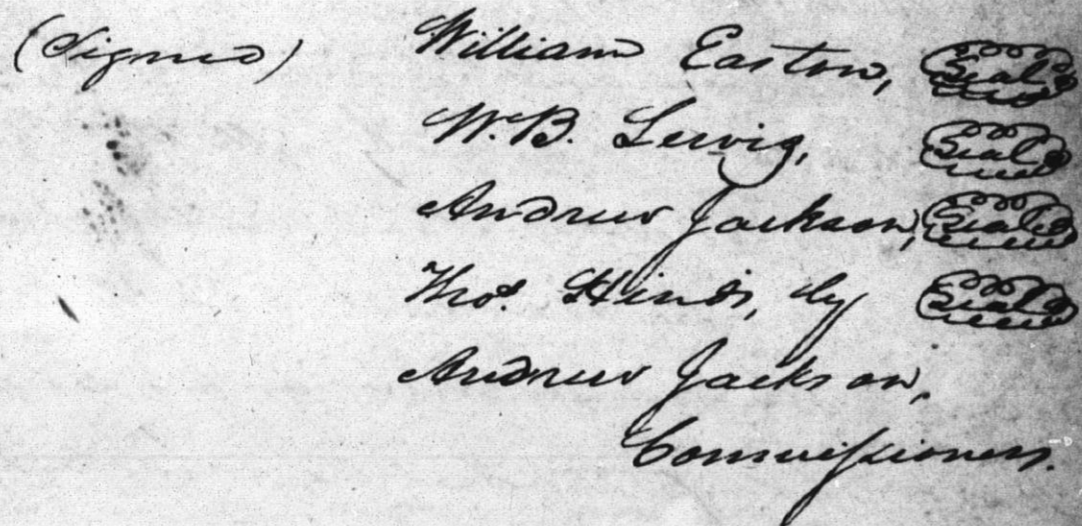 (Signed) William Easton, Seal
W. B. Lewis, Seal
Andrew Jackson, Seal
Thos. Hinds, by Seal
Andrew Jackson,
Commissioners.